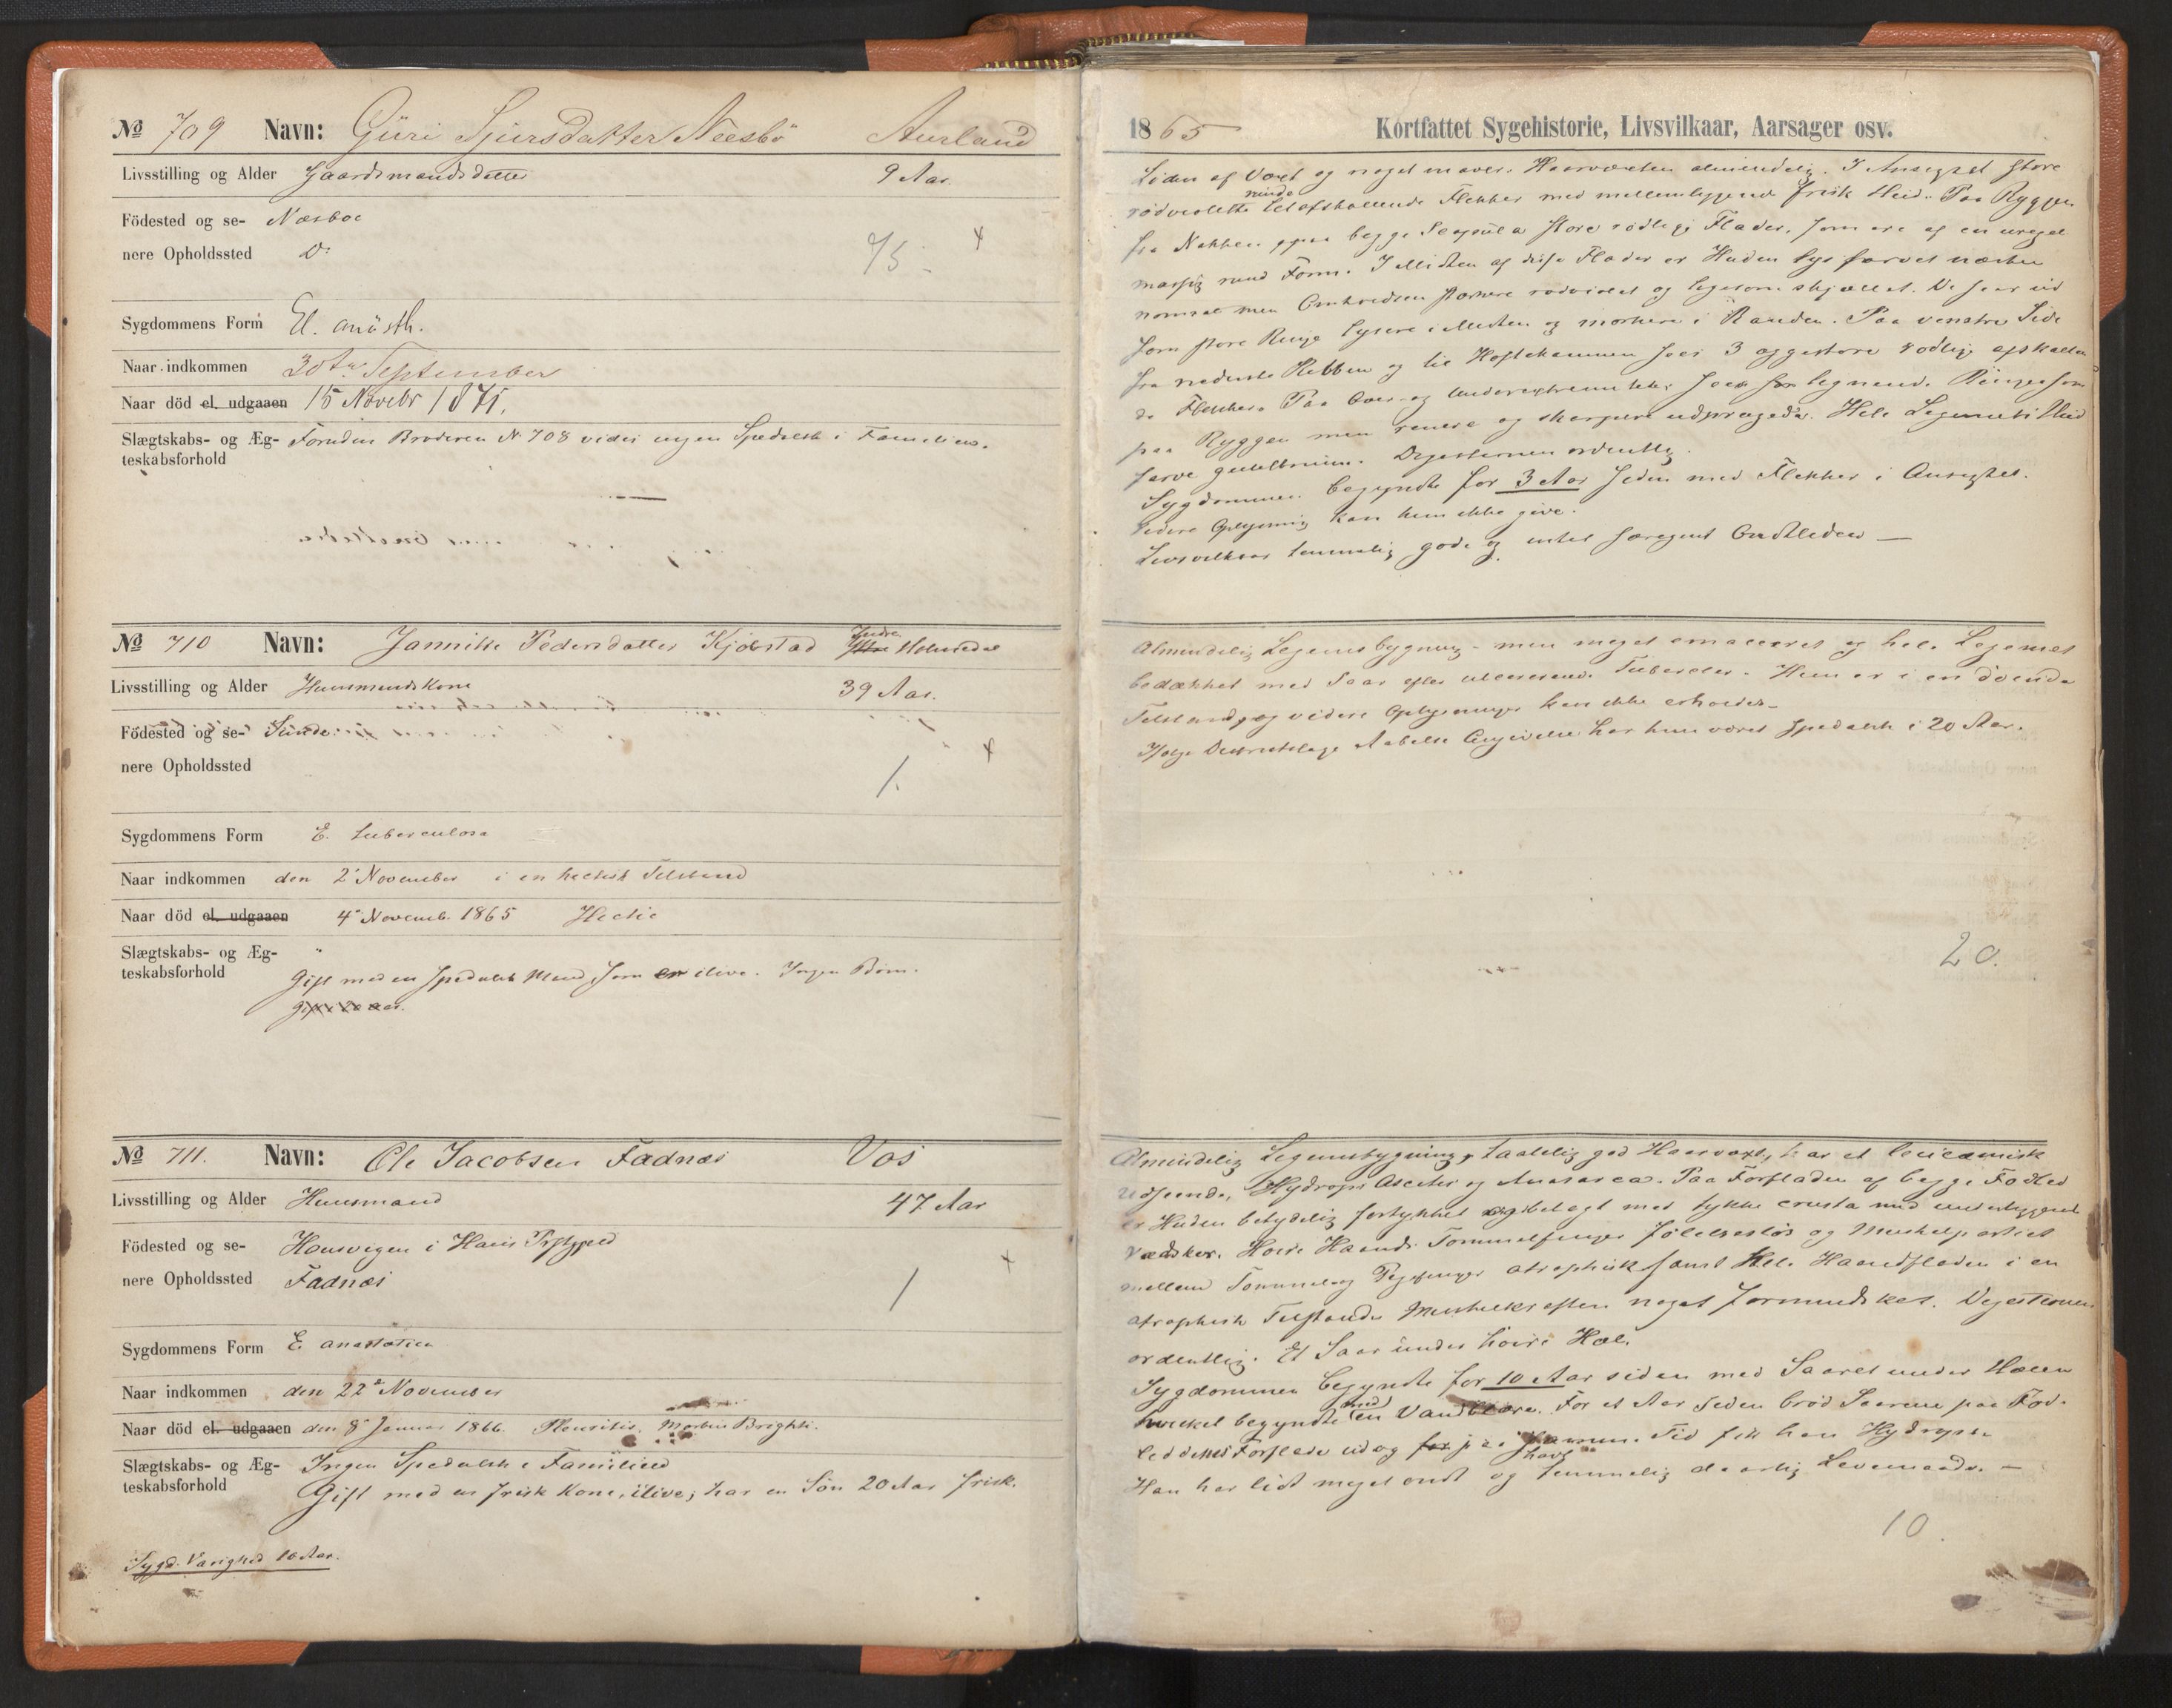 № 709 Navn: Güri Sjursdatter Neesbö Aurland
Livsstilling og Alder Gaardmandsdatter 9 Aar.
Födested og se- Næsboe
nere Opholdssted Do
9/5. +
Sygdommens Form El. anästh.
Naar indkommen 30te September
Naar död el. udgaaen 15 Novebr 1871.
Slægtskabs- og Æg- Foruden Broderen No 708 vides ingen Spedalsk i Familien.
teskabsforhold
№ 710 Navn: Jannike Pedersdatter Kjöbstad Indre Holmedal
Livsstilling og Alder Huusmandskone 39 Aar.
Födested og se- Sunde
nere Opholdssted
1. +
Sygdommens Form E. tuberculosa
Naar indkommen den 2 November i en hectisk Tilstand
Naar död el. udgaaen 4 Novemb. 1865 Hectic
Slægtskabs- og Æg- "
teskabsforhold Gift med en spedalsk Mand, som er ilive. Ingen Börn.
№ 711. Navn: Ole Jacobsen Fadnæs Vos
Livsstilling og Alder Huusmand 47 Aar
Födested og se- Honsvegen i Haus
nere Opholdssted Fadnæs
1 +
Sygdommens Form E.
Naar indkommen den 22 November
Naar död el. udgaaen den 8 Januar 1866. Pleuritis, Morbus Brighti.
Slægtskabs- og Æg- Ingen Spedalsk i Familien
teskabsforhold Gift med en frisk Kone, ilive; har en Sön 20 Aar frisk.
Sygd. Varighed 10 Aar.
1865 Kortfattet Sygehistorie, Livsvilkaar, Aarsager osv.
Liden af Vext og noget maver. Haarvæxten almindelig. I Ansigtet store
rödviolette runde Flekker med mellemliggende frisk Hud. Paa Ryggen
fra Nakken paa begge Scapula store rödlige Flader, som ere af en uregel
mæssig rund Form. I Midten af disse Flader er Huden lys farvet næsten
normal men Omkredsen stærkere rödviolet og ligesom skjællet. De seer ud
som store Ringe lysere i Midten og mörkere i Randen. Paa venstre Side
fra nederste Ribben og til Hoftekammen sees 3 æggestore rödlige afskallen
de Flekker. Paa Over- og Underextremiteter sees lignende Ringe som
paa Ryggen men renere og skarpere udprægede. Hele Legemets Hud
farve guulbruun. Digestionen ordentlig.
Sygdommen begyndte for 3 Aar siden med Flekker i Ansigtet.
videre Oplysning kan hun ikke give.
Livsvilkaar temmelig gode og intet særegent Ondtliden —
Almindelig Legemsbygning - men meget emacieret og hele Legemet
bedækket med Saar efter ulcererende Tuberkler. Hun er i en döende
Tilstand og videre Oplysninger kan ikke erholdes.
Ifölge Districtslæge Angivelse har hun været spedalsk i 20 Aar.
20.
Almindelig Legemsbygning, taalelig god Haarvæxt, har et leucæmisk
udseende, Hydrops Ascites og Anasarca. Paa Forfladen af begge Fodled
er Huden betydelig fortykket og belagt med tykke crusta med underliggende
Vædsker. Höire Haands Tommelfinger fölelseslös og Muskelpartiet
mellem Tommel og Pegefinger atrophisk samt hele Haandfladen i en
atrophisk Tilstand. Muskelkraften noget formindsket. Digestionen
ordentlig. Et Saar under höire Hæl.
Sygdommen begyndte for 10 Aar siden med Saaret under Hælen
hvilket begyndte med en Vandblære. For et Aar siden bröd Saarene paa Fod-
leddenes Forflade ud og paa samme Tid fik han Hydropsen
Han har lidt meget ondt og havt temmelig daarlig Levemaade. —
10.